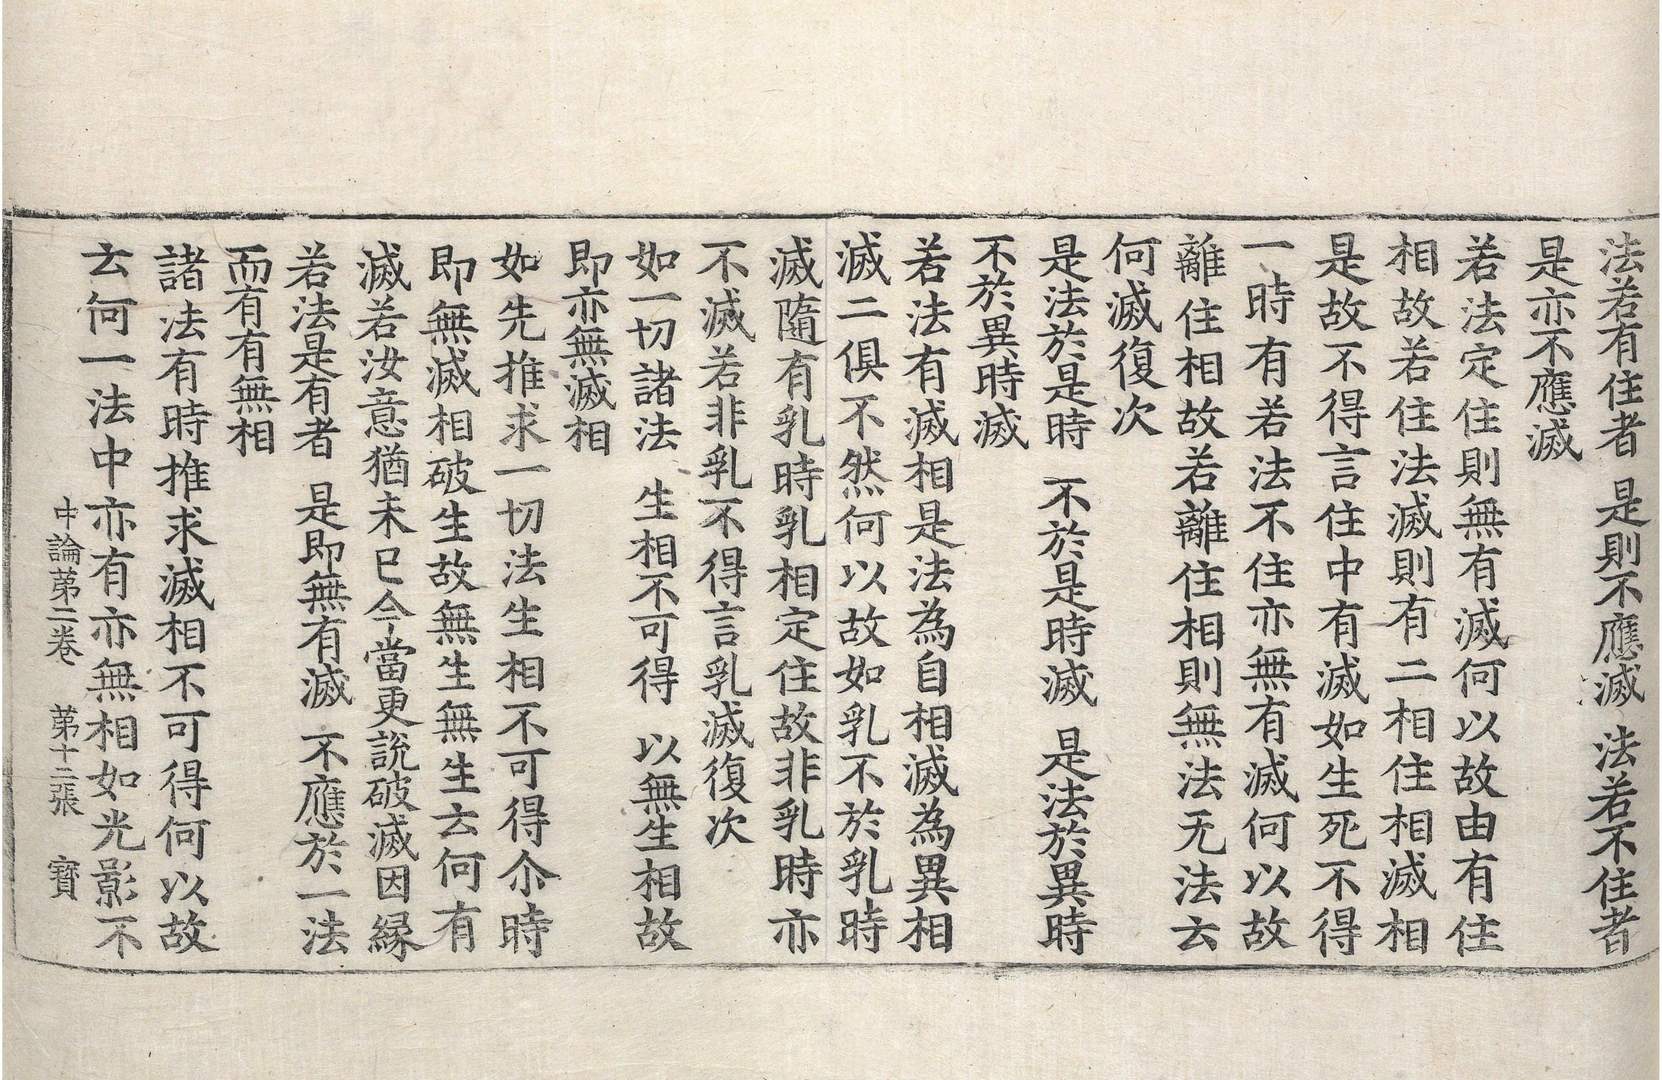 法若有住者 是則不應滅 法若不住者
是亦不應滅
若法定住則無有滅何以故由有住
相故若住法滅則有二相住相滅相
是故不得言住中有滅如生死不得
一時有若法不住亦無有滅何以故
離住相故若離住相則無法无法云
何滅復次
是法於是時 不於是時滅 是法於異時
不於異時滅
若法有滅相是法為自相滅為異相
滅二俱不然何以故如乳不於乳時
滅隨有乳時乳相定住故非乳時亦
不滅若非乳不得言乳滅復次
如一切諸法 生相不可得 以無生相故
即亦無滅相
如先推求一切法生相不可得尒時
即無滅相破生故無生無生云何有
滅若汝意猶未已今當更說破滅因緣
若法是有者 是即無有滅 不應於一法
而有有無相
諸法有時推求滅相不可得何以故
云何一法中亦有亦無相如光影不
中論第二卷 第十二張 寳